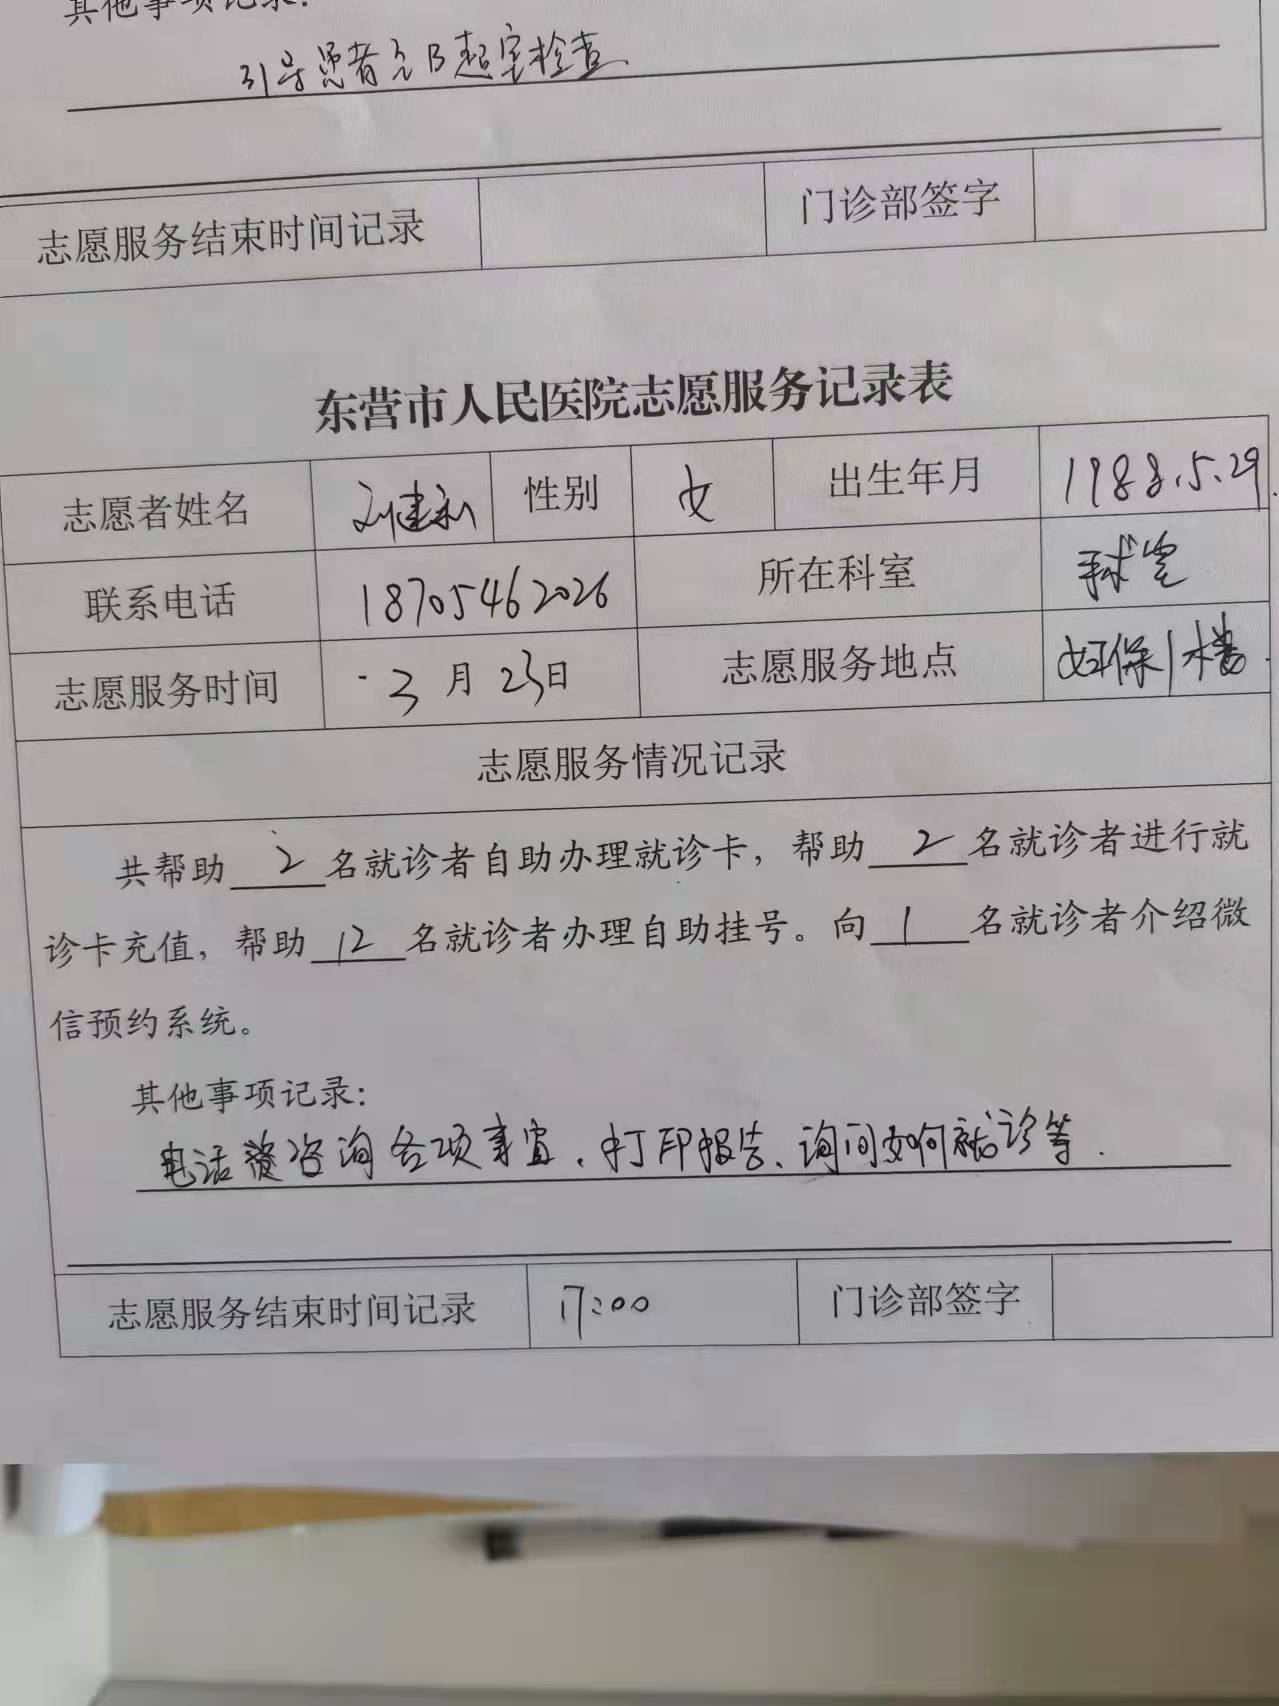 其他事项记录:
引导患者去B超室检查
志愿服务结束时间记录 门诊部签字
东营市人民医院志愿服务记录表
志愿者姓名 刘建 性别 女 出生年月 1988.5.29.
联系电话 18705462026 所在科室
志愿服务时间 3月23日 志愿服务地点 妇保1楼.
志愿服务情况记录
共帮助 2 名就诊者自助办理就诊卡，帮助 2 名就诊者进行就
诊卡充值，帮助 12 名就诊者办理自助挂号。向 1 名就诊者介绍微
信预约系统。
其他事项记录:
电话 咨询各项事宜、打印报告、询问如何就诊等.
志愿服务结束时间记录 17:00 门诊部签字